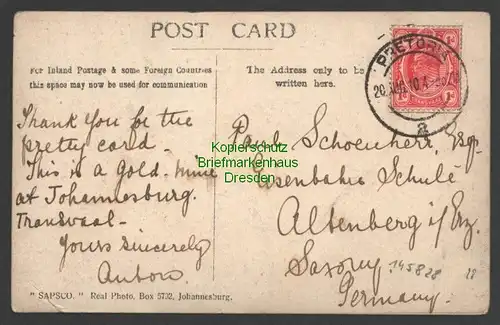 POST CARD
For Inland Postage & some Foreign Countries
this space may now be used for communication
The Address only to be
written here.
PRETORIA
2
Thank you for the
pretty card.
This is a gold-mine
at Johannesburg.
Transvaal.
Yours sincerely
Anton
Paul Schoenherr, Esq.
Eisenbahn Schule
Altenberg i/Erz.
Saxony
Germany.
145828
Kopierschutz
Briefmarkenhaus
Dresden
"SAPSCO." Real Photo, Box 5792, Johannesburg.